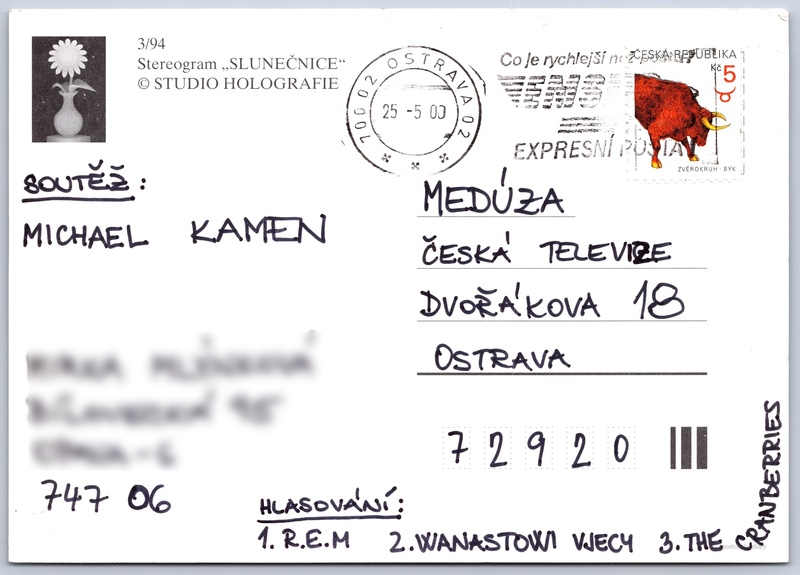 3/94
Stereogram „SLUNEČNICE“
© STUDIO HOLOGRAFIE
700 02 OSTRAVA 02
25 -5 00
Co je rychlejší než
EMS
EXPRESNÍ POŠTA
ČESKÁ REPUBLIKA
Kč 5
ZVĚROKRUH - BÝK
SOUTĚŽ:
MICHAEL KAMEN
MEDÚZA
ČESKÁ TELEVIZE
DVOŘÁKOVA 18
OSTRAVA
72920
747 06
HLASOVÁNÍ:
1. R.E.M 2. WANASTOWI VJECY 3. THE CRANBERRIES